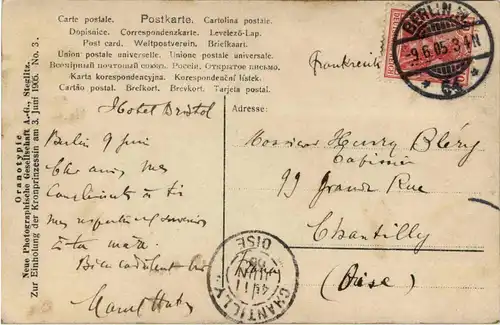 Carte postale. Postkarte. Cartolina postale.
Dopisnice. Correspondenzkarte. Levelező-Lap.
Post card. Weltpostverein. Briefkaart.
Union postale universelle. Unione postale universale.
Всемірный почтовый союзъ. Россія. Открытое письмо.
Karta korespondencyjna. Korespondenční lístek.
Cartão postal. Brefkort. Brevkort. Tarjeta postal.
Oranotypie
Neue Photographische Gesellschaft A.-G., Steglitz.
Zur Einholung der Kronprinzessin am 3. Juni 1905. No. 3.
BERLIN
9.6.05. 3-4N
Frankreich
Adresse:
Hotel Bristol
Berlin 9 juin
Cher ami, mes
compliments à toi
mes respectueux souvenirs
à ta mère.
Bien cordialement
Monsieur Henry Bléry
99 Grande Rue
Chantilly
(Oise)
CHANTILLY
OISE
JUIN
05